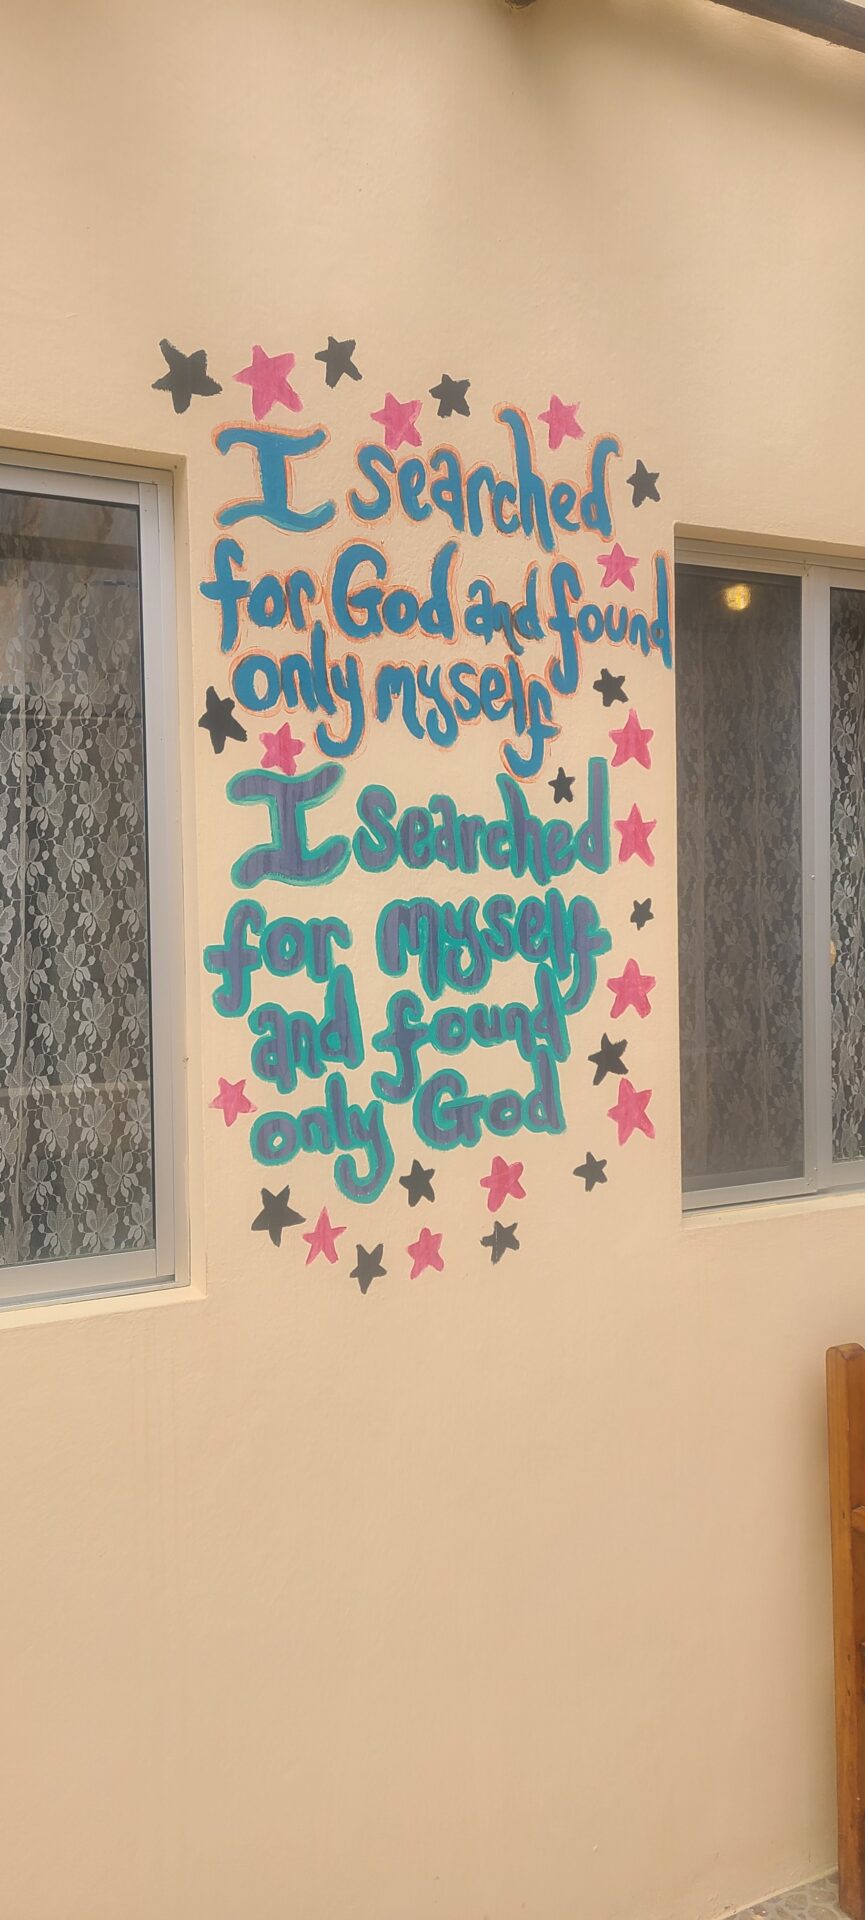 I searched
for God and found
only myself
I searched
for myself
and found
only God